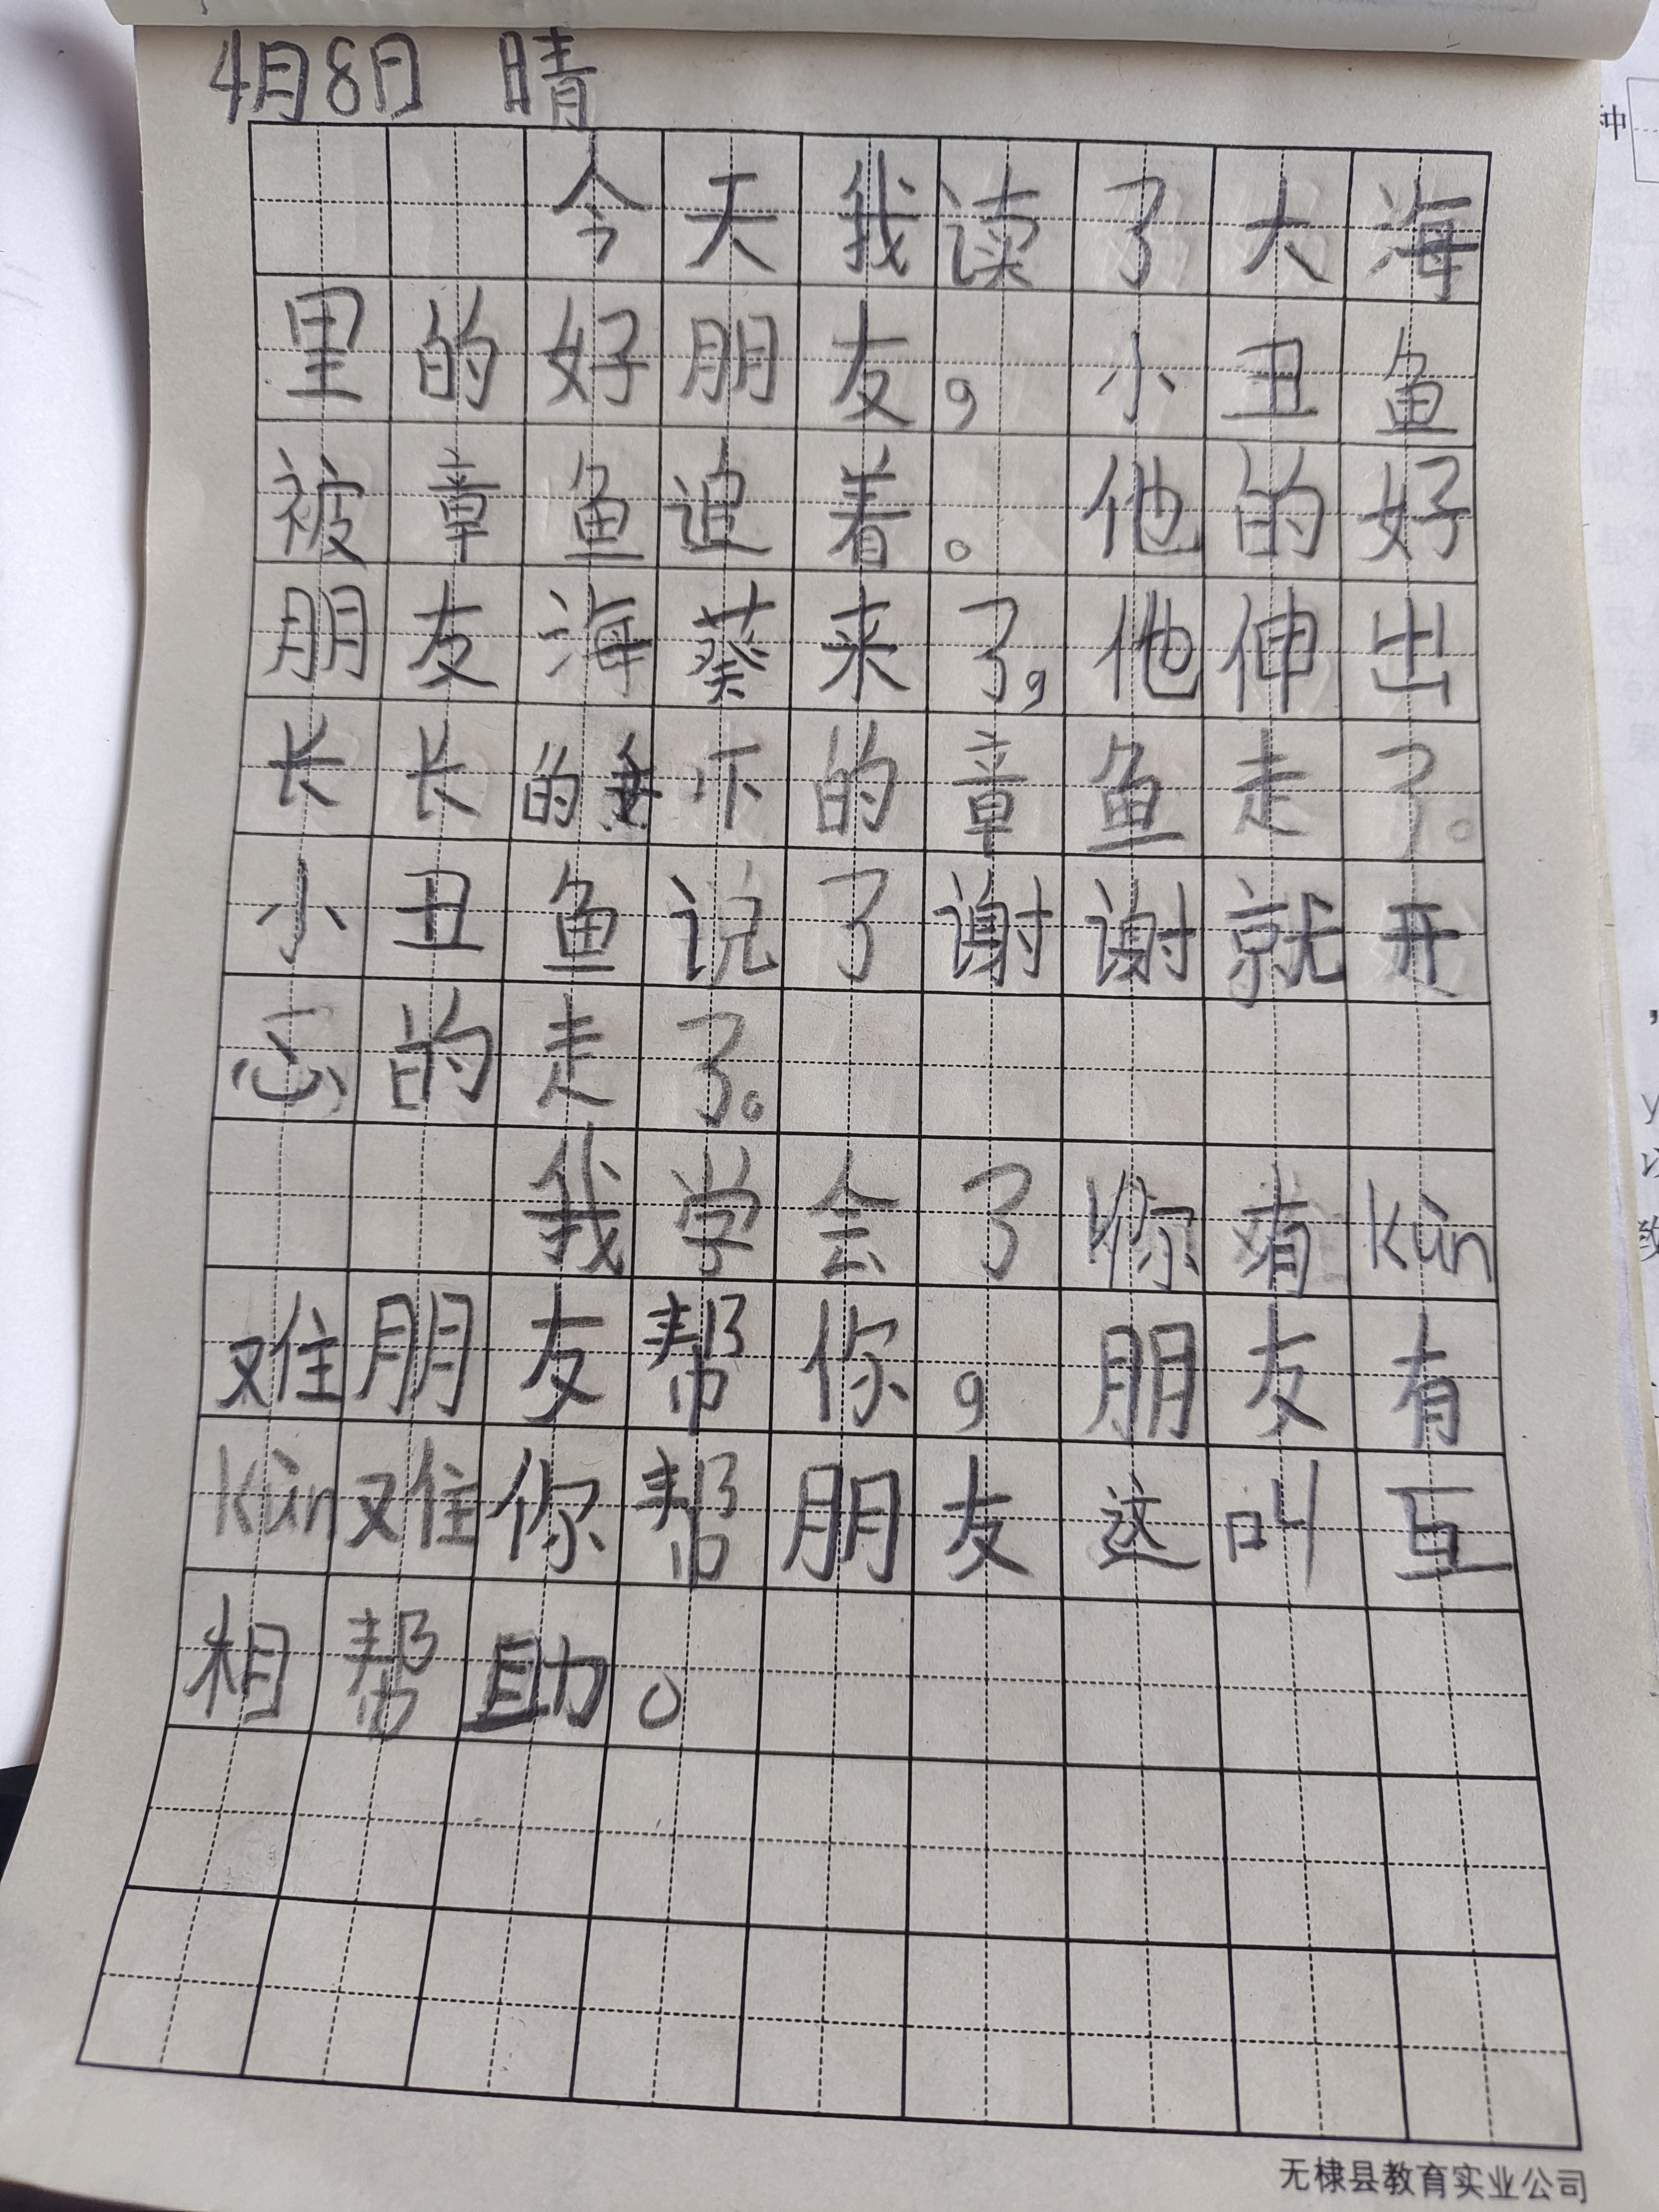 4月8日 晴
今天我读了大海
里的好朋友，小丑鱼
被章鱼追着。他的好
朋友海葵来了，他伸出
长长的 下的章鱼走了。
小丑鱼说了谢谢就开
心的走了。
我学会了你有kùn
难朋友帮你，朋友有
kùn难你帮朋友这叫互
相帮助。
无棣县教育实业公司